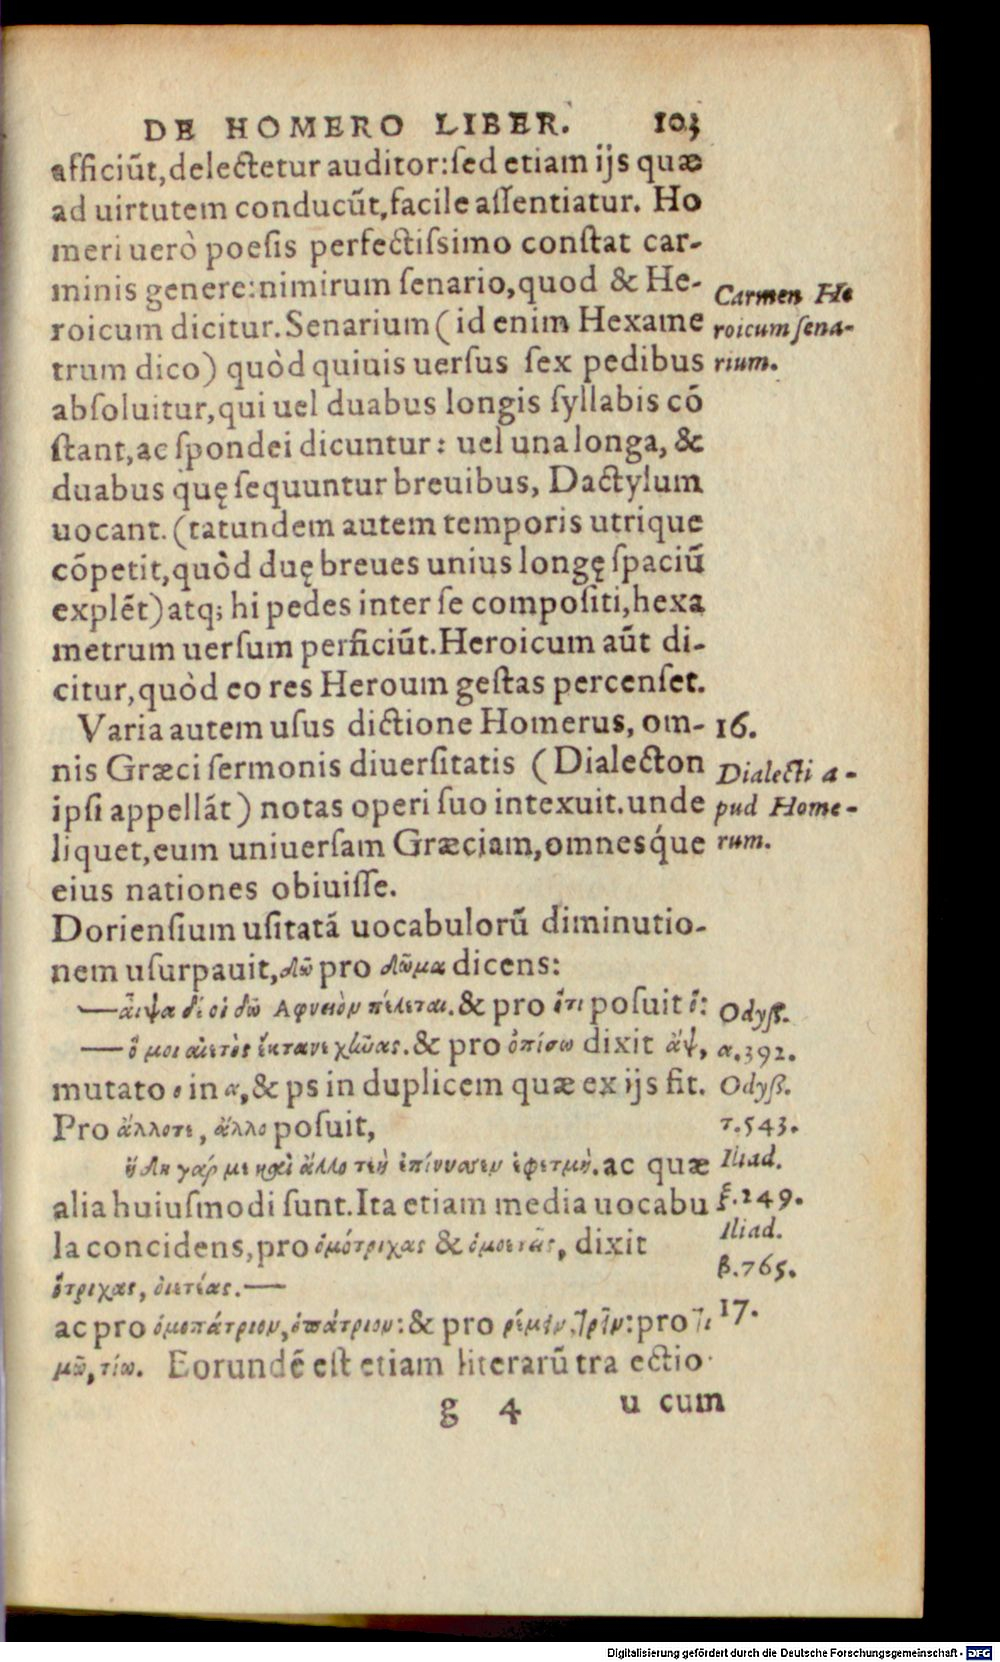 DE HOMERO LIBER. 103
afficiūt, delectetur auditor: sed etiam ijs quæ
ad uirtutem conducūt, facile assentiatur. Ho
meri uerò poesis perfectissimo constat car-
minis genere: nimirum senario, quod & He-
roicum dicitur. Senarium (id enim Hexame
trum dico) quòd quiuis uersus sex pedibus
absoluitur, qui uel duabus longis syllabis cō
stant, ac spondei dicuntur: uel una longa, &
duabus quę sequuntur breuibus, Dactylum
uocant. (tatundem autem temporis utrique
cōpetit, quòd duę breues unius longę spaciū
explēt) atq; hi pedes inter se compositi, hexa
metrum uersum perficiūt. Heroicum aūt di-
citur, quòd eo res Heroum gestas percenset.
Carmen He
roicum sena-
rium.
Varia autem usus dictione Homerus, om-
nis Græci sermonis diuersitatis (Dialecton
ipsi appellāt) notas operi suo intexuit. unde
liquet, eum uniuersam Græciam, omnesq́ue
eius nationes obiuisse.
16.
Dialecti a-
pud Home-
rum.
Doriensium usitatā uocabulorū diminutio-
nem usurpauit, δῶ pro δῶμα dicens:
—αἶψα δέ οἱ δῶ Αφνειὸν πέλεται. & pro ὅτι posuit ὅ:
—ὅ μοι αἰετὸς ἔκτανε χῆνας. & pro ὀπίσω dixit ἄψ,
mutato ο in α, & ps in duplicem quæ ex ijs fit.
Pro ἄλλοτε, ἄλλο posuit,
ἤδη γάρ με καὶ ἄλλο τεὴ ἐπίνυσσεν ἐφετμὴ. ac quæ
alia huiusmodi sunt. Ita etiam media uocabu
la concidens, pro ὁμότριχας & ὁμοετεῖς, dixit
ὄτριχας, ὀιετέας.—
ac pro ὁμοπάτριον, ὀπάτριον: & pro
μῶ, τίω. Eorundē est etiam literarū tra ectio
Odyss.
α.392.
Odyss.
τ.543.
Iliad.
ξ.249.
Iliad.
β.765.
17.
g 4 u cum
Digitalisierung gefördert durch die Deutsche Forschungsgemeinschaft - DFG